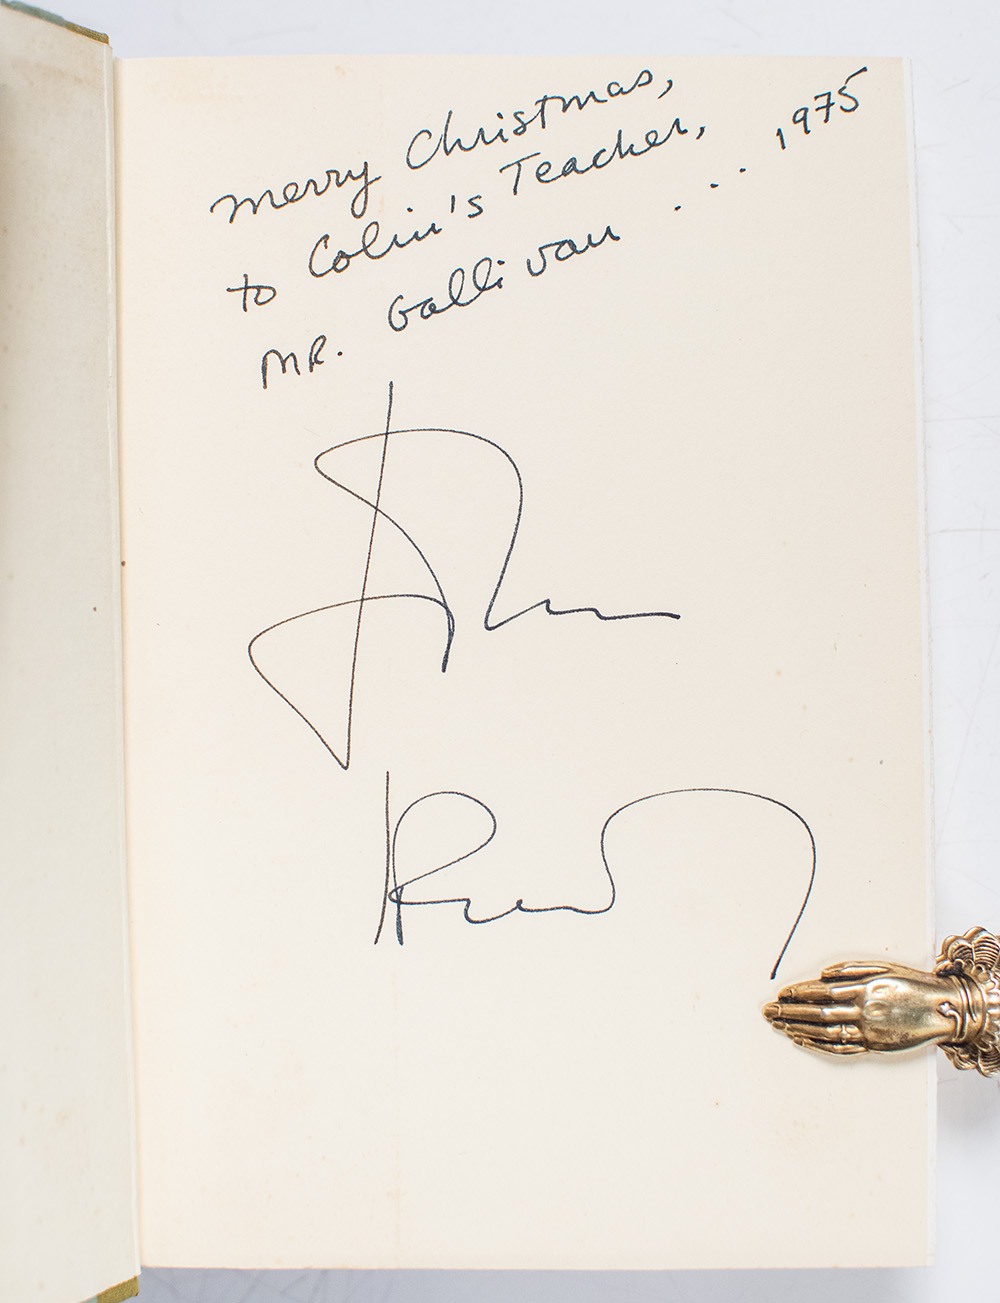 Merry Christmas,
to Colin's Teacher,
MR. Gallivan . . . 1975